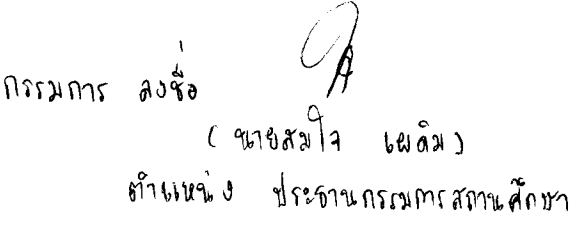 กรรมการ ลงชื่อ
( นายสมใจ เผดิม )
ตำแหน่ง ประธานกรรมการสถานศึกษา